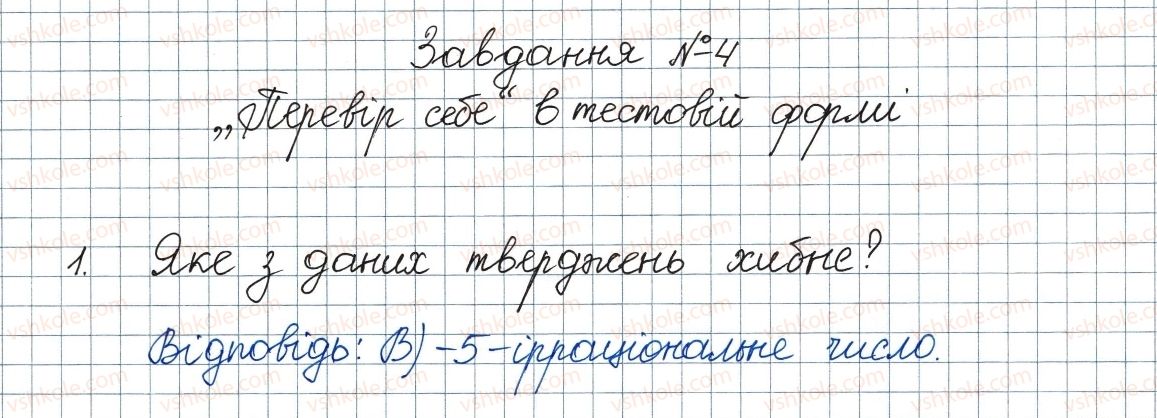 Завдання №4
„Перевір себе“ в тестовій формі
1. Яке з даних тверджень хибне?
Відповідь: В) -5 - ірраціональне число.